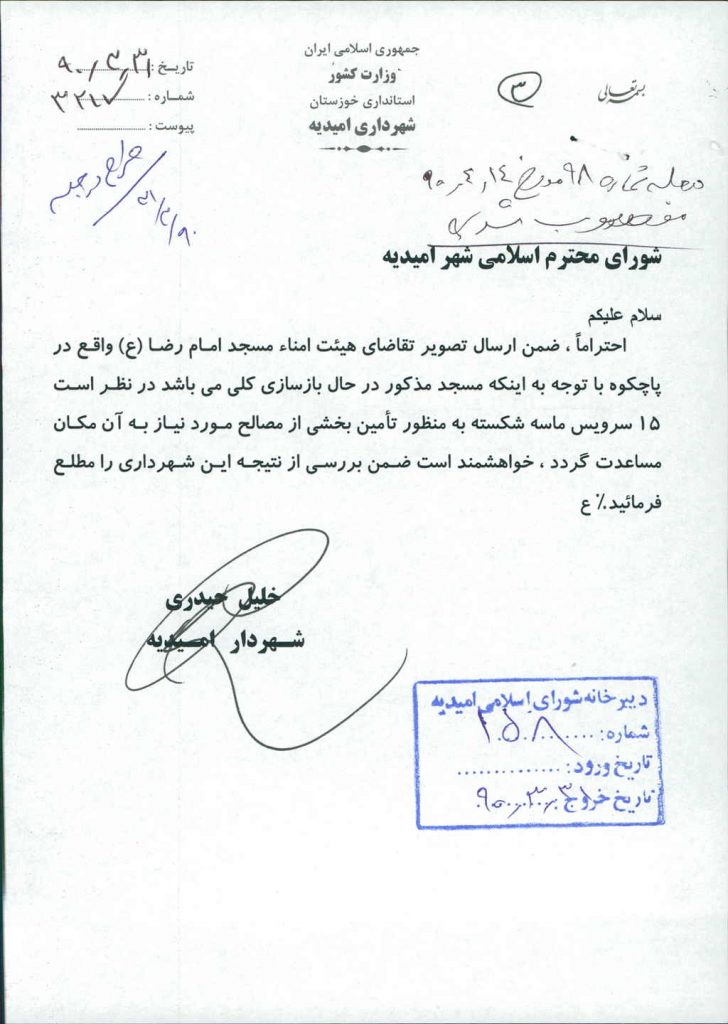 بسمه تعالی
۳
جمهوری اسلامی ایران
وزارت کشور
استانداری خوزستان
شهرداری امیدیه
تاریخ : ۹۰/۳/۳۱
شماره : ۳۲۱۷
پیوست :
طرح در جلسه
۳۱/۳/۹۰
در جلسه شماره ۹۸ مورخ ۱۴/۴/۹۰
مصوب شد
شورای محترم اسلامی شهر امیدیه
سلام علیکم
احتراماً ، ضمن ارسال تصویر تقاضای هیئت امناء مسجد امام رضا (ع) واقع در
پاچکوه با توجه به اینکه مسجد مذکور در حال بازسازی کلی می باشد در نظر است
۱۵ سرویس ماسه شکسته به منظور تأمین بخشی از مصالح مورد نیاز به آن مکان
مساعدت گردد ، خواهشمند است ضمن بررسی از نتیجه این شهرداری را مطلع
فرمائید.٪ ع
خلیل حیدری
شهردار امیدیه
دبیرخانه شورای اسلامی امیدیه
شماره: ۲۵۸
تاریخ ورود:
تاریخ خروج: